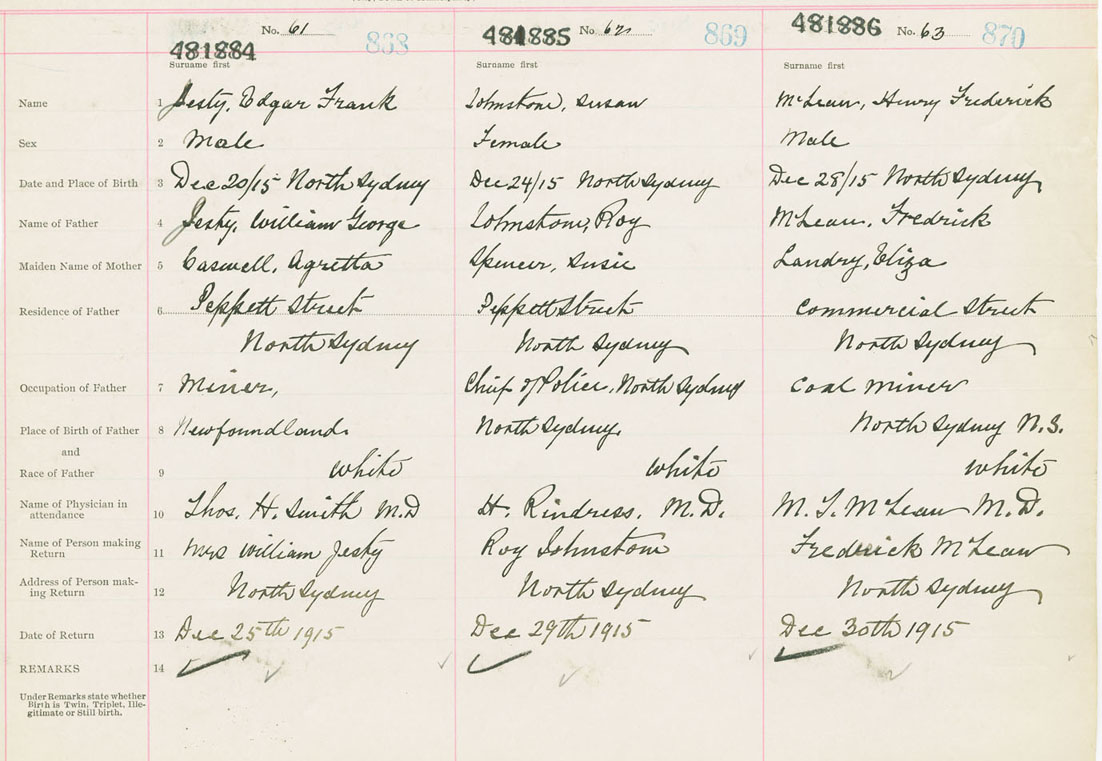 No. 61 868 No. 62 869 481886 No. 63 870
481884 481885
Surname first Surname first Surname first
Name 1 Jesty, Edgar Frank Johnstone, Susan McLean, Henry Frederick
Sex 2 Male Female Male
Date and Place of Birth 3 Dec 20/15 North Sydney Dec 24/15 North Sydney Dec 28/15 North Sydney
Name of Father 4 Jesty, William George Johnstone, Roy McLean, Fredrick
Maiden Name of Mother 5 Caswell, Agretta Spencer, Susie Landry, Eliza
Residence of Father 6 Peppett Street Peppett Street Commercial Street
North Sydney North Sydney North Sydney
Occupation of Father 7 Miner, Chief of Police, North Sydney Coal Miner
Place of Birth of Father 8 Newfoundland North Sydney North Sydney N.S.
and
Race of Father 9 white white white
Name of Physician in
attendance 10 Thos. H. Smith M.D H. Rindress. M.D. M. T. McLean M.D.
Name of Person making
Return 11 Mrs William Jesty Roy Johnstone Fredrick McLean
Address of Person mak-
ing Return 12 North Sydney North Sydney North Sydney
Date of Return 13 Dec 25th 1915 Dec 29th 1915 Dec 30th 1915
REMARKS 14
Under Remarks state whether
Birth is Twin, Triplet, Ille-
gitimate or Still birth.